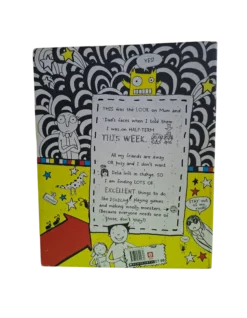 YES!
THIS was the LOOK on Mum and
Dad's faces when I told them
I was on HALF-TERM
THIS WEEK.
All my friends are away
OR busy and I don't want
Delia left in charge. SO
I am finding LOTS OF
EXCELLENT things to do
like DOODLING playing games
and making woolly monsters.
(Because everyone needs one of
those, don't they?)